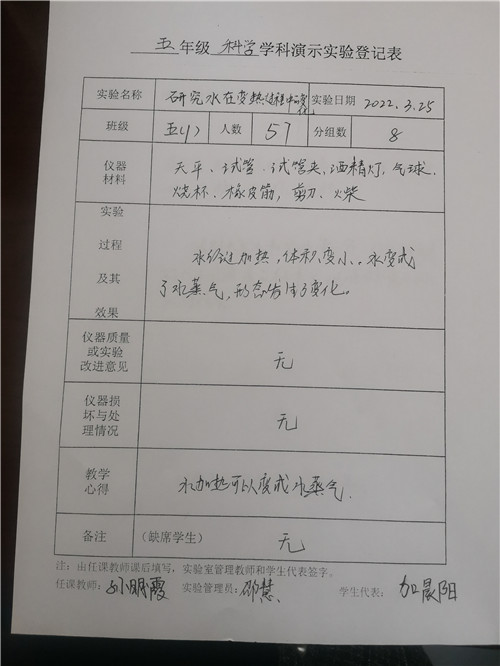 五年级 科学学科演示实验登记表
实验名称 研究水在变热过程中的变化 实验日期 2022.3.25
班级 五(1) 人数 57 分组数 8
仪器 天平、试管、试管夹、酒精灯、气球、
材料 烧杯、橡皮筋、剪刀、火柴
实验
过程 加热,体积变小。水变成
及其 了水蒸气,形态发生了变化。
效果
仪器质量
或实验
改进意见 无
仪器损
坏与处
理情况 无
教学
心得 水加热可以变成水蒸气.
备注 (缺席学生) 无
注:由任课教师课后填写,实验室管理教师和学生代表签字。
任课教师: 明霞 实验管理员: 邵慧 学生代表: 晨阳